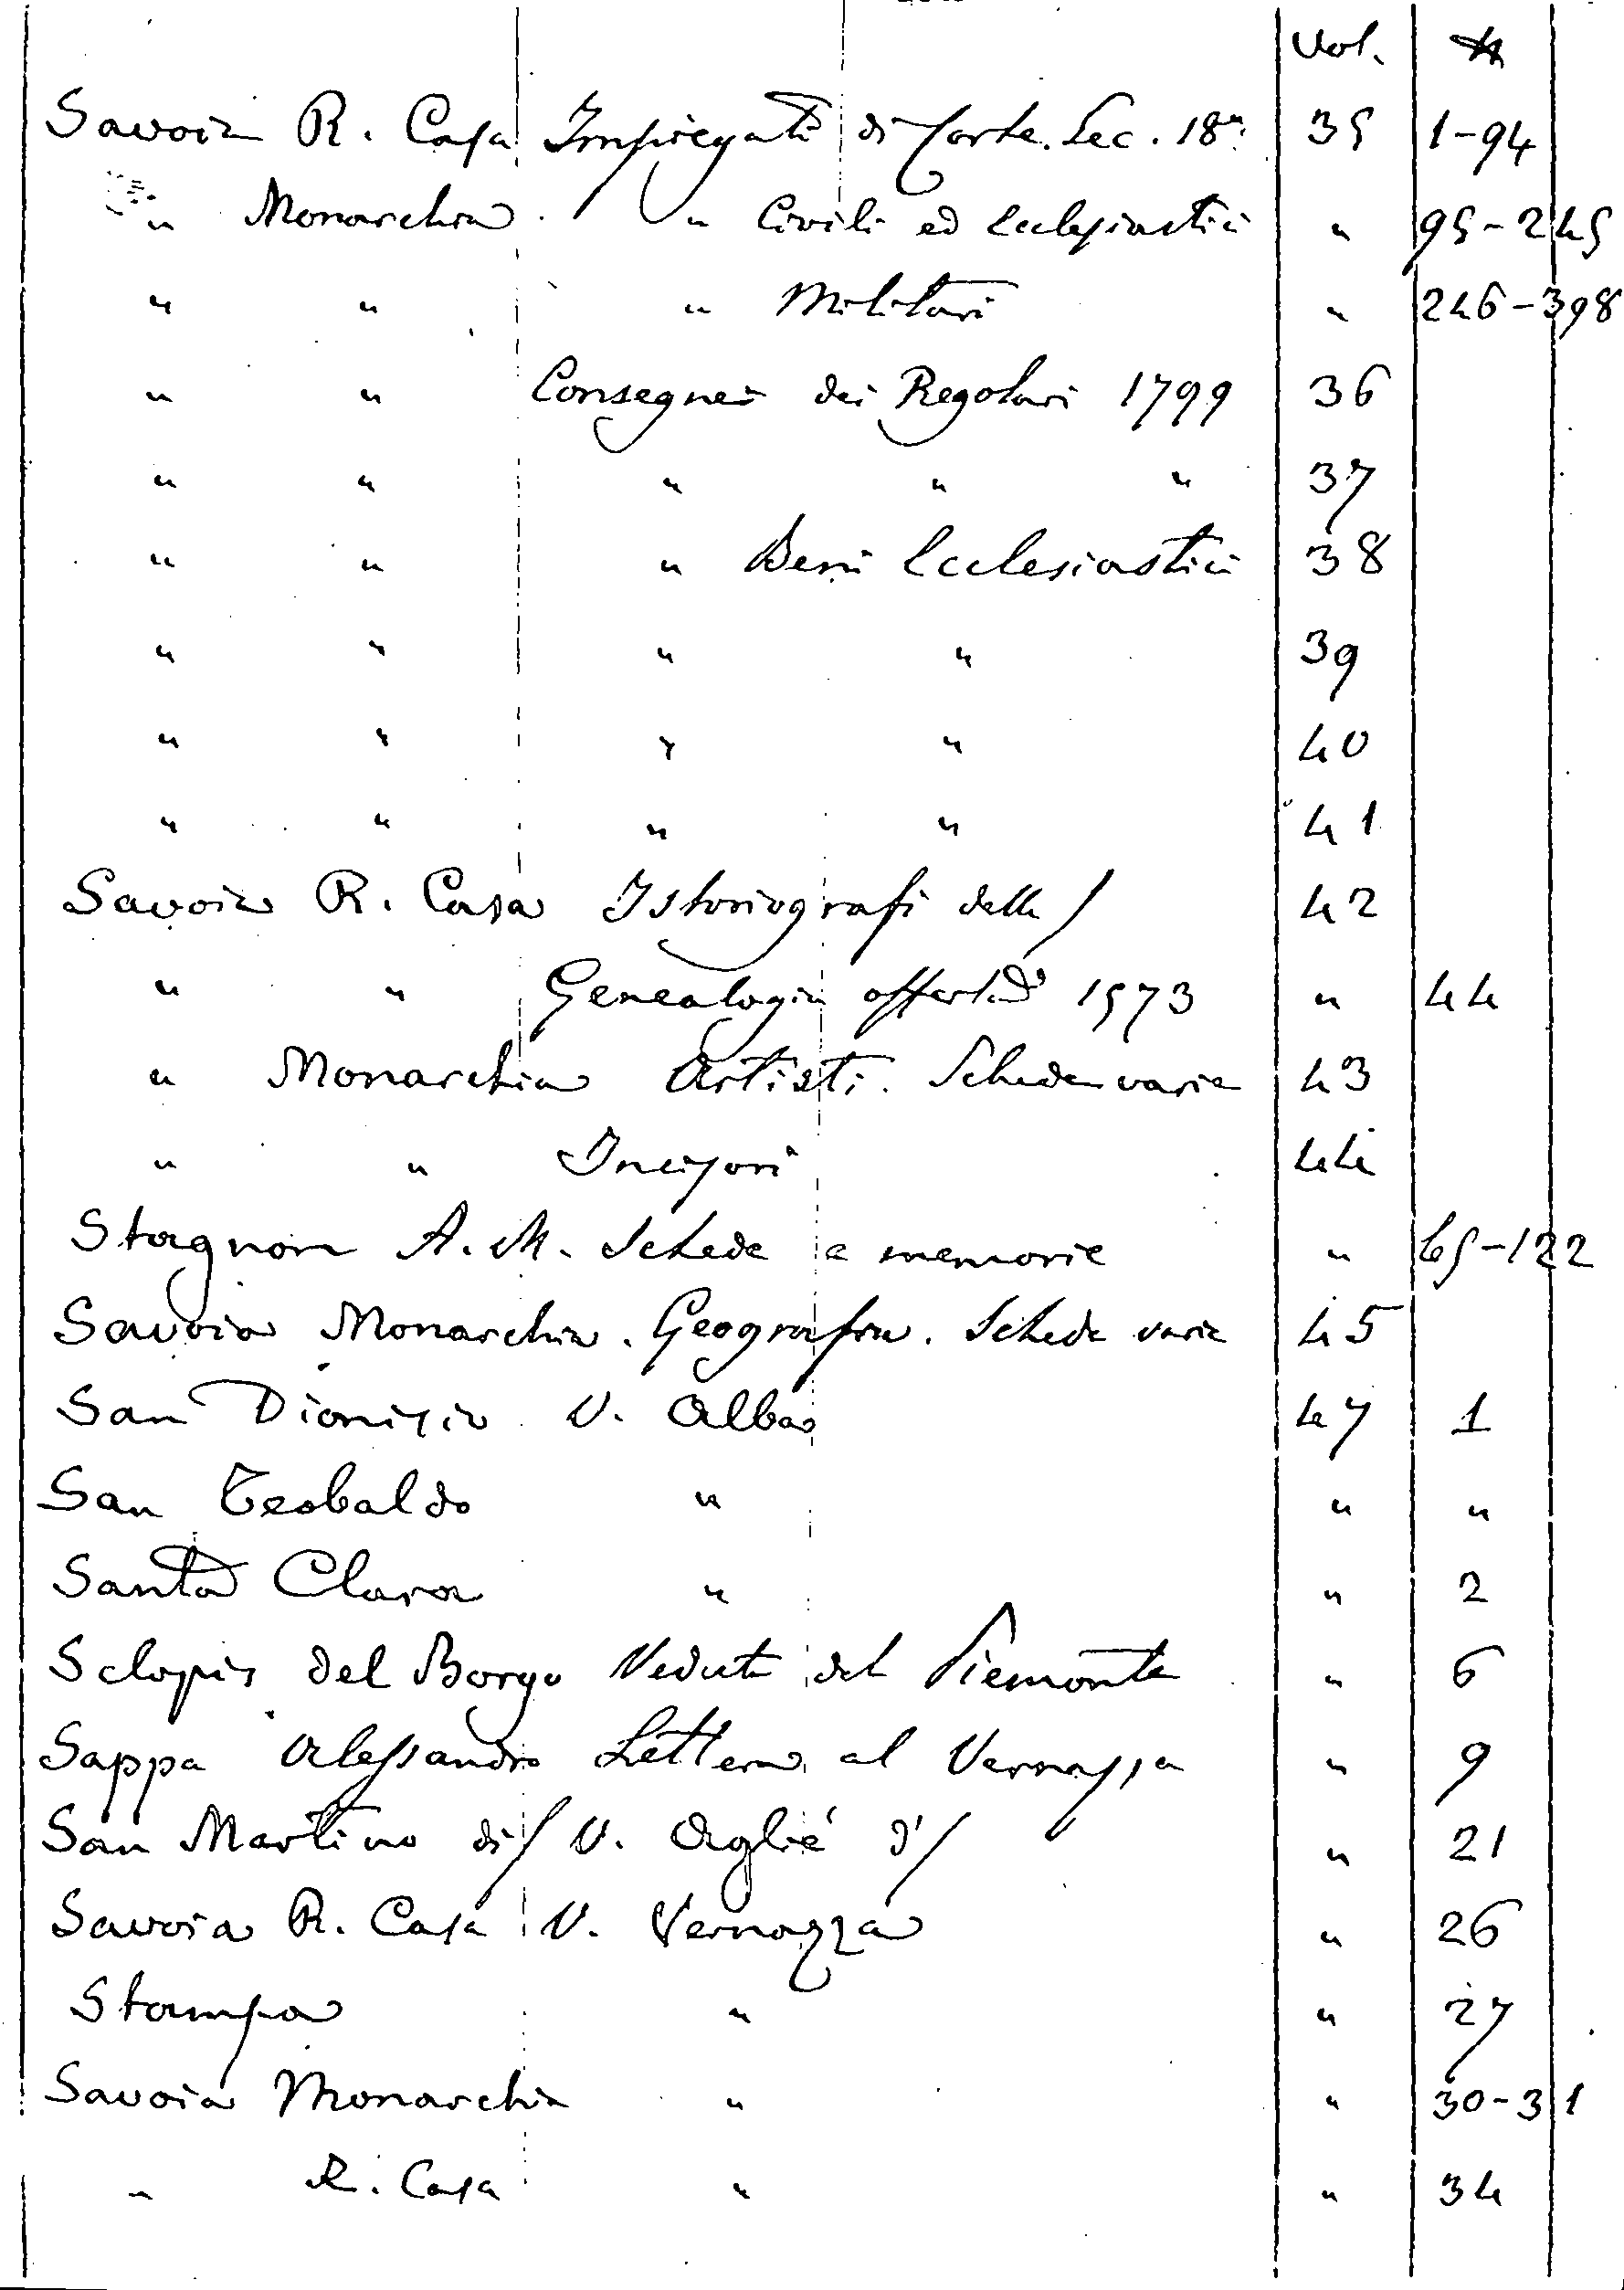 Vol.
Savoia R. Casa Impiegati di Corte. Sec. 18º 35 1-94
" Monarchia " Civili ed Ecclesiastici " 95-245
" " " Militari " 246-398
" " Consegne dei Regolari 1799 36
" " " " " 37
" " " Beni Ecclesiastici 38
" " " " 39
" " " " 40
" " " " 41
Savoia R. Casa Istoriografi della / 42
" " Genealogia offerta 1573 " 44
" Monarchia Artisti. Schede varie 43
" " Incisori 44
Stagnon A. M. Schede e memorie " 65-122
Savoia Monarchia. Geografia. Schede varie 45
San Dionisio V. Alba 47 1
San Teobaldo " " "
Santa Clara " " 2
Sclopis del Borgo Vedute del Piemonte " 6
Sappa Alessandro Lettera al Vernazza " 9
San Martino di / V. Aglié d' / " 21
Savoia R. Casa V. Vernazza " 26
Stampa " " 27
Savoia Monarchia " " 30-31
" R. Casa " " 34